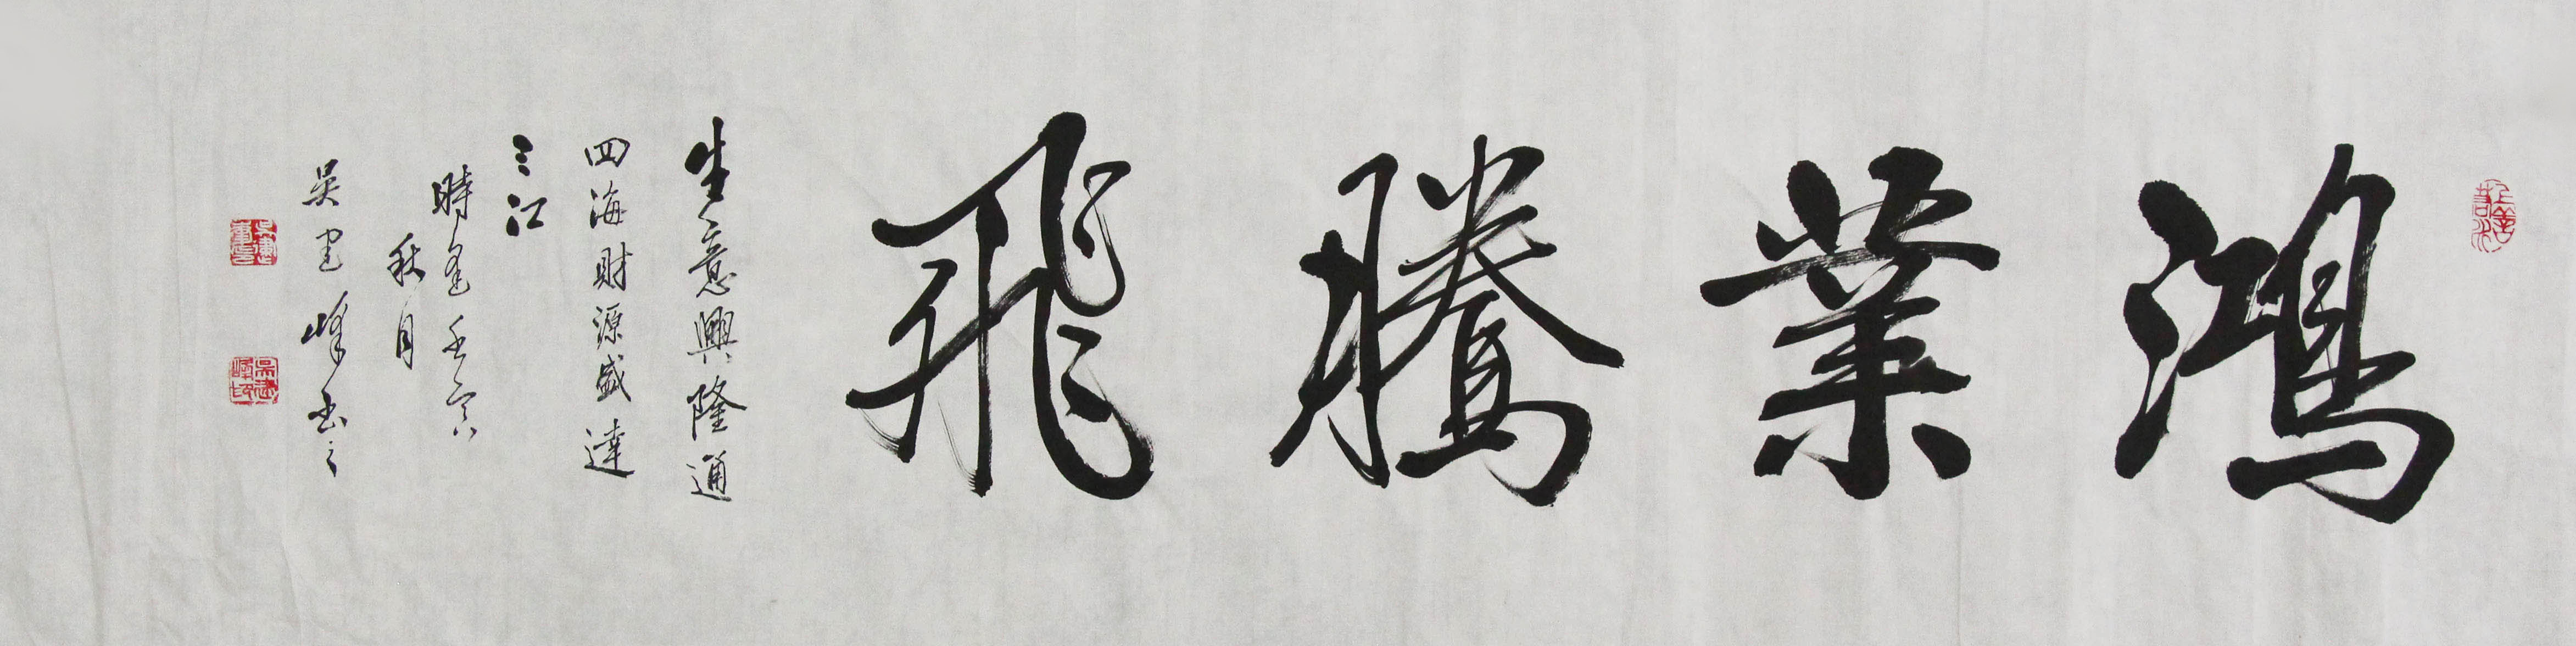 鴻業騰飛
生意興隆通
四海財源盛達
三江
時在壬寅
秋月
吳建峰書之
上善若水